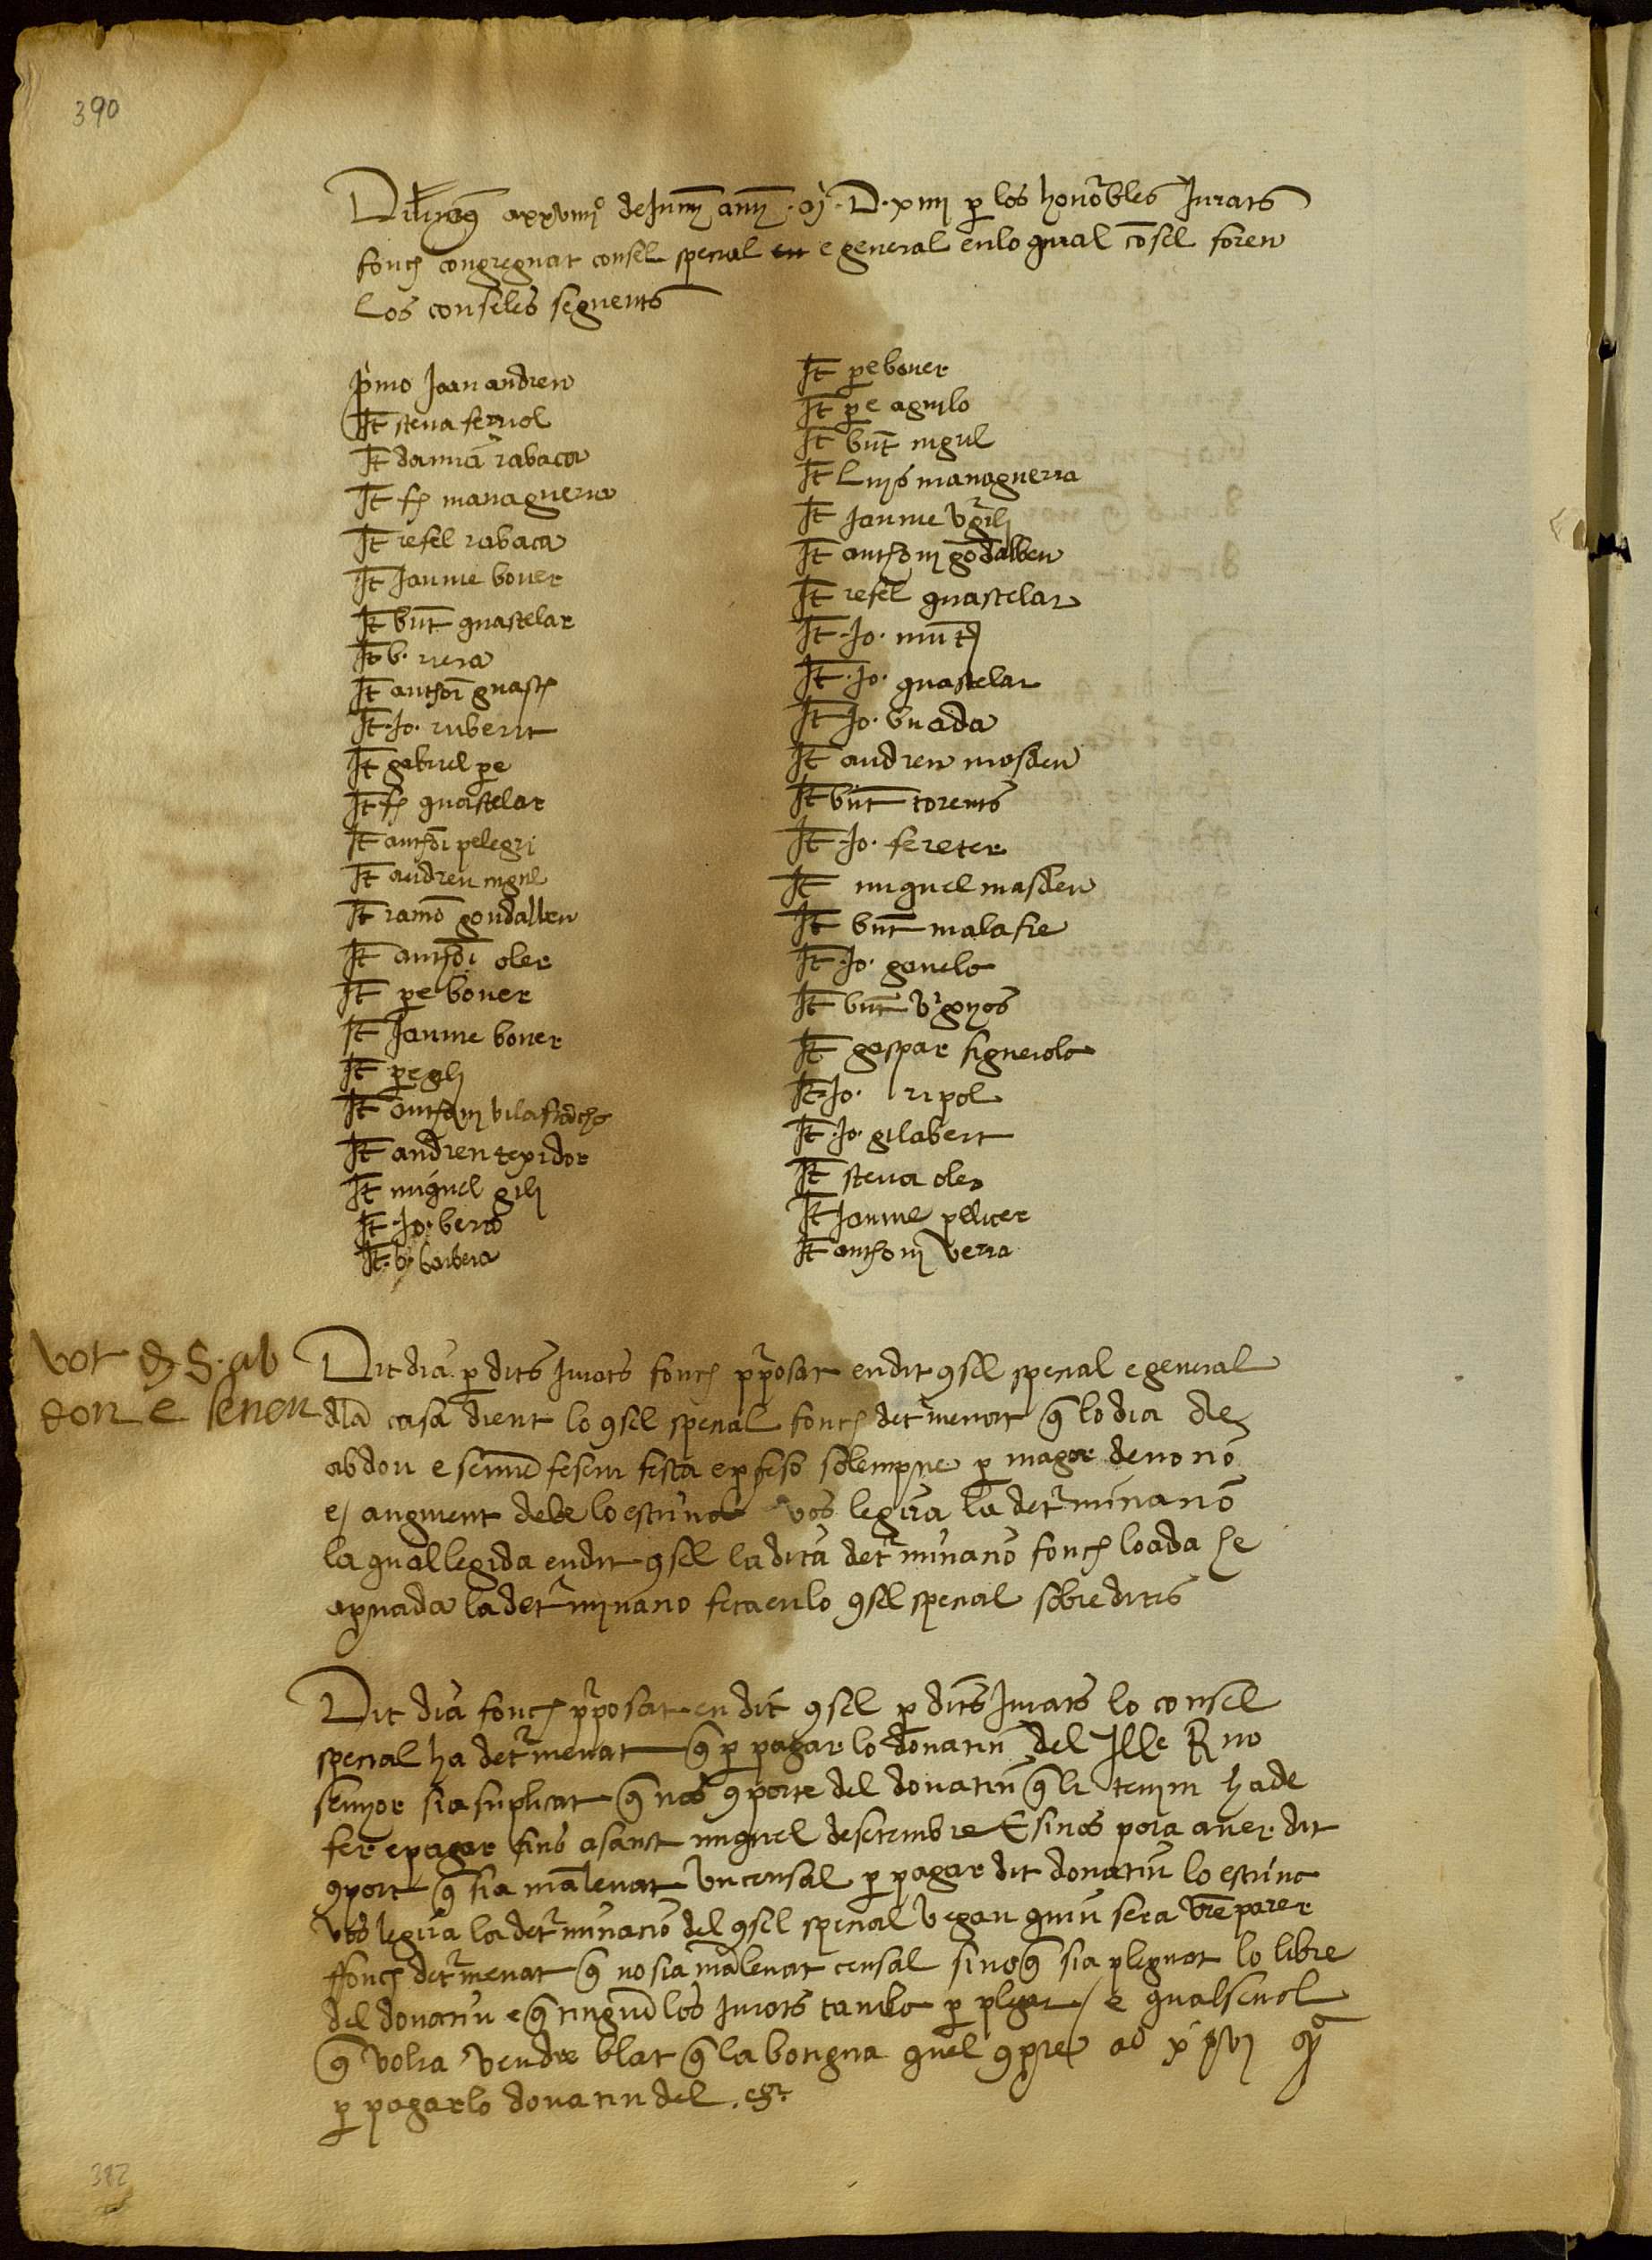 390
de Juny any D xiiii per los honorables Jurats
fonch congreguat consel special e general en lo qual consel foren
los conseles seguents
primo Joan andreu
It steva feruol
It damia rabaca
It fr managuerra
It refel rabaca
It Jaume bouer
It bnt guastelar
It b. riera
It anthoni guasch
It Jo. rubert
It gabriel pere
It fr guastelar
It anthoni pelegri
It andreu ingul
It ramo gondalbeu
It anthoni oler
It pere bouer
It Jaume bouer
It pere gili
It anthoni vilafrancha
It andreu texidor
It miguel gili
It Jo. berto
It b. barbera
It pere bouer
It pere aguilo
It bnt ingul
It Luys managuerra
It Jaume virgili
It anthoni gondalbeu
It refel guastelar
It Jo. munt
It Jo. guastelar
It Jo. buada
It andreu masdeu
It bnt torents
It Jo. fereter
It miguel masdeu
It bnt malafre
It Jo. ganelo
It bnt virgyos
It gaspar figuerola
It Jo. ripol
It Jo. gilabert
It steva oler
It Jaume pellicer
It anthoni verra
vot de S. ab
don e senen
Dit dia per dits Jurats fonch proposat en dit consel special e general
dla casa dient lo consel special fonch determenat que lo dia de
abdon e senen fesem festa e profeso solempne per magor devono
e augment de lo escriva vos legira la determinano
la qual legida en dit consel la dita determinano fonch loada he
aprovada la determinano feta en lo consel special sobredits
Dit dia fonch proposat en dit consel per dits Jurats lo consel
special ha determenat que per pagar lo donatiu del Ille R mo
senyor sia suplicat que nos comporte del donatiu que li tenim ha de
fer e pagar fins a sanct miguel de setembre E si nos pora aver dit
comport que sia manlevat un censal per pagar dit donatiu lo escriva
vos legira la determinacio del consel special vegau quin sera vre parer
ffonch determenat que no sia manlevat censal sino que sia pleguat lo libre
del donatiu e que tinguen los Jurats tamba per plegar e qualsevol
que volra vendre blat que la botigua quel compre
per pagar lo donatiu del
382